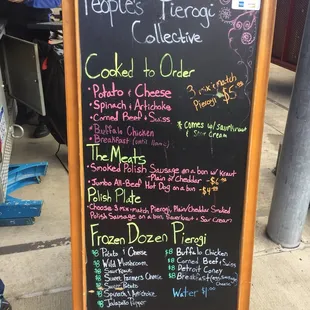 People's Pierogi
Collective
Cooked to Order
• Potato & Cheese
• Spinach & Artichoke
• Corned Beef & Swiss
• Buffalo Chicken
• Breakfast
3 mix & match
Pierogi - $5
* Comes w/ Sauerkraut
& Sour Cream
The Meats
• Smoked Polish Sausage on a bun w/ Kraut
- Plain or Cheddar - $6
• Jumbo All-Beef Hot Dog on a bun - $4
Polish Plate
• Choose 3 mix-match Pierogi, Plain/Cheddar Smoked
Polish Sausage on a bun, Sauerkraut & Sour Cream
Frozen Dozen Pierogi
$8 Potato & Cheese
$8 Wild Mushroom
$8 Sauerkraut
$8 Sweet Farmers Cheese
$8 Sweet Potato
$8 Spinach & Artichoke
$8 Jalapeño Popper
$8 Buffalo Chicken
$8 Corned Beef & Swiss
$8 Detroit Coney
$8 Breakfast
Water $1.00